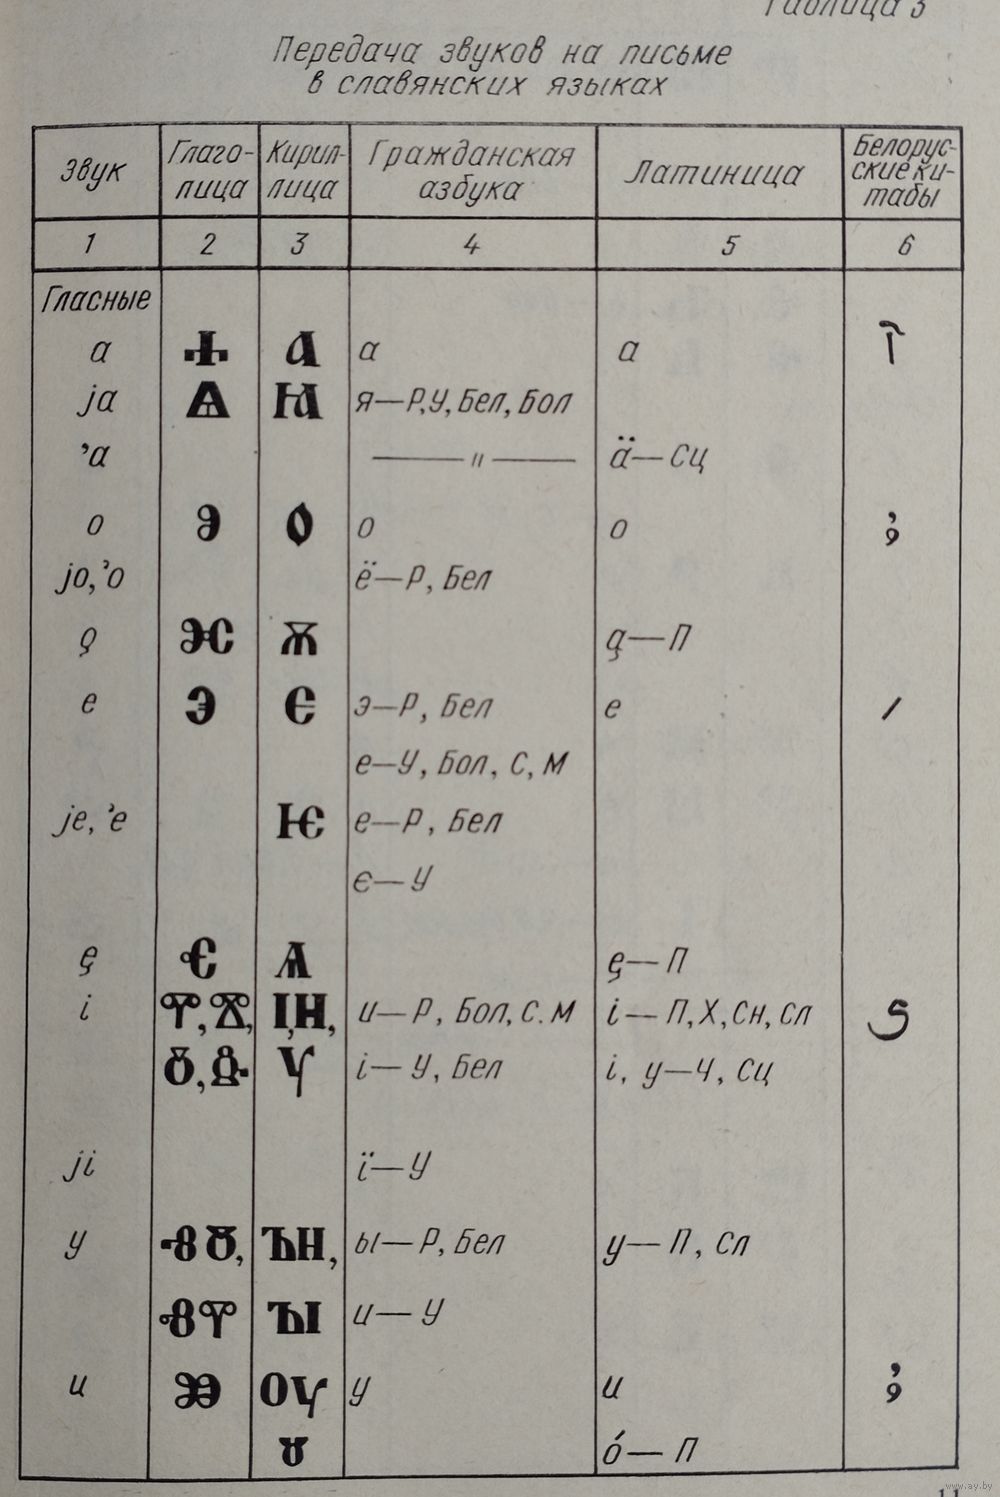 Таблица 3
Передача звуков на письме
в славянских языках
Звук | Глаго-лица | Кирил-лица | Гражданская азбука | Латиница | Белорус-ские ки-табы
1 | 2 | 3 | 4 | 5 | 6
Гласные
а | Ⰰ | А | а | a
ja | Ⱑ | Ꙗ | я—Р,У,Бел,Бол
’а | —〃— | ä—Сц
о | Ⱁ | О | о | o
jo,’o | ё—Р, Бел
ǫ | Ⱘ | Ѫ | ą—П
е | Ⰵ | Є | э—Р, Бел | e
е—У, Бол, С, М
je, ’e | Ѥ | е—Р, Бел
є—У
ę | Ⱔ | Ѧ | ę—П
i | Ⰹ, Ⰻ, | І,Н, | и—Р, Бол, С. М | i—П,Х,Сн,Сл
Ү | i—У, Бел | i, y—Ч, Сц
ji | ї—У
y | ЪН, | ы—Р, Бел | y—П, Сл
ЪІ | и—У
u | ОУ | у | u
Ꙋ | ó—П
11
www.ay.by